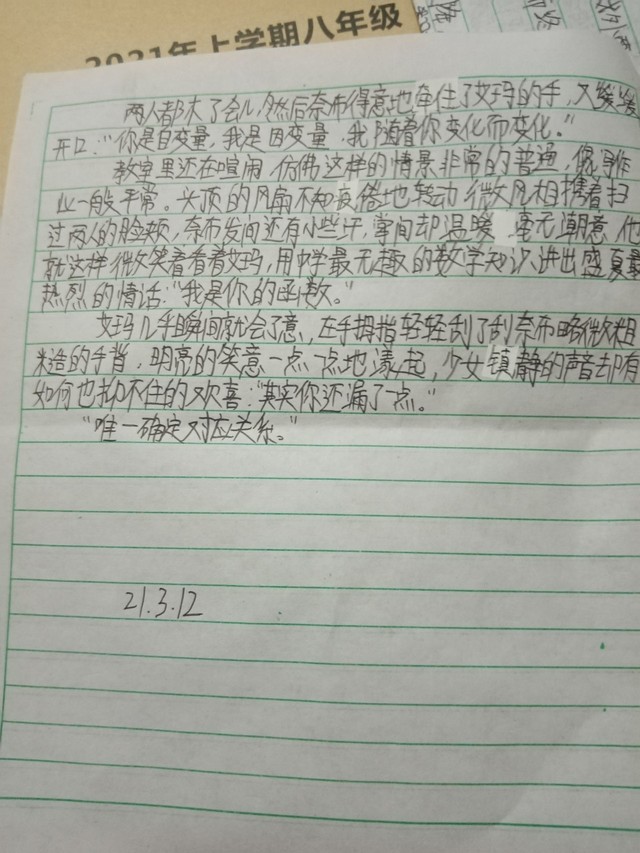 2021年上学期八年级
两人都木了会儿,然后奈布得意地牵住了艾玛的手,又缓缓
开口:“你是自变量,我是因变量,我随着你变化而变化。”
教室里还在喧闹,仿佛这样的情景非常的普通,像写作
业一般平常。头顶的风扇不知疲倦地转动,微风相携着扫
过两人的脸颊,奈布发间还有小些汗,掌间却温暖,毫无潮意,他
就这样微笑着看着艾玛,用中学最无趣的数学知识讲出盛夏最
热烈的情话:“我是你的函数。”
艾玛几乎瞬间就会了意,左手拇指轻轻刮了刮奈布略微粗
糙的手背,明亮的笑意一点一点地漾起,少女镇静的声音却有
如何也抑不住的欢喜:“其实你还漏了一点。”
“唯一确定对应关系。”
21.3.12